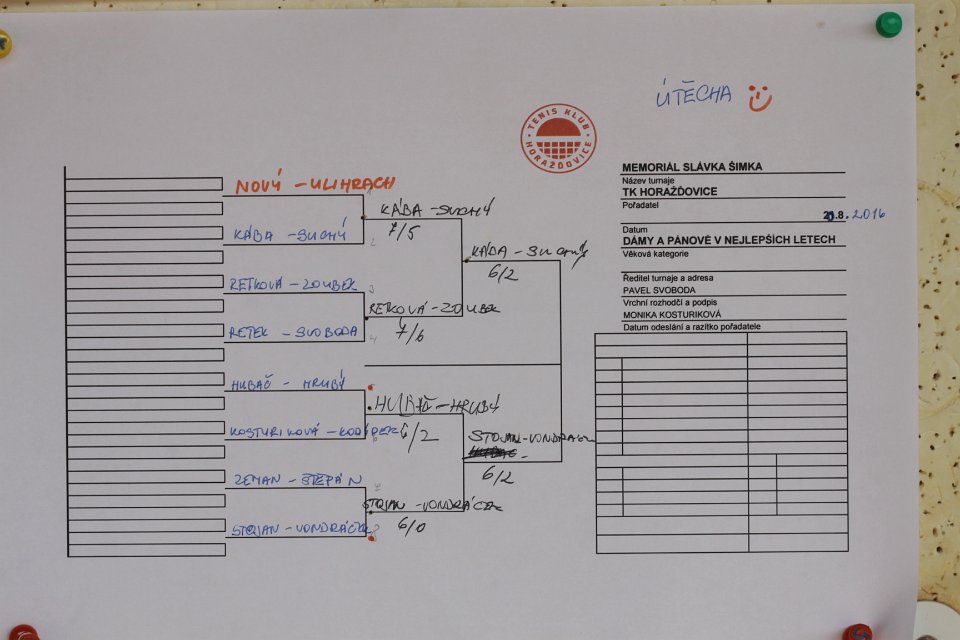 ÚTĚCHA
TENIS KLUB
HORAŽĎOVICE
MEMORIÁL SLÁVKA ŠIMKA
Název turnaje
TK HORAŽĎOVICE
Pořadatel
21.8. 2016
Datum
DÁMY A PÁNOVÉ V NEJLEPŠÍCH LETECH
Věková kategorie
Ředitel turnaje a adresa
PAVEL SVOBODA
Vrchní rozhodčí a podpis
MONIKA KOSTURIKOVÁ
Datum odeslání a razítko pořadatele
NOVÝ - ULIHRACH
KÁBA - SUCHÝ
RETKOVÁ - ZOUBEK
RETEK - SVOBODA
HUBAČ - HRUBÝ
KOSTURIKOVÁ -
ZEMAN - ŠTĚPÁN
STOJAN - VONDRÁČEK
KÁBA - SUCHÝ
7/5
RETKOVÁ - ZOUBEK
7/6
HUBAČ - HRUBÝ
6/2
STOJAN - VONDRÁČEK
6/0
KÁBA - SUCHÝ
6/2
STOJAN - VONDRÁČEK
6/2